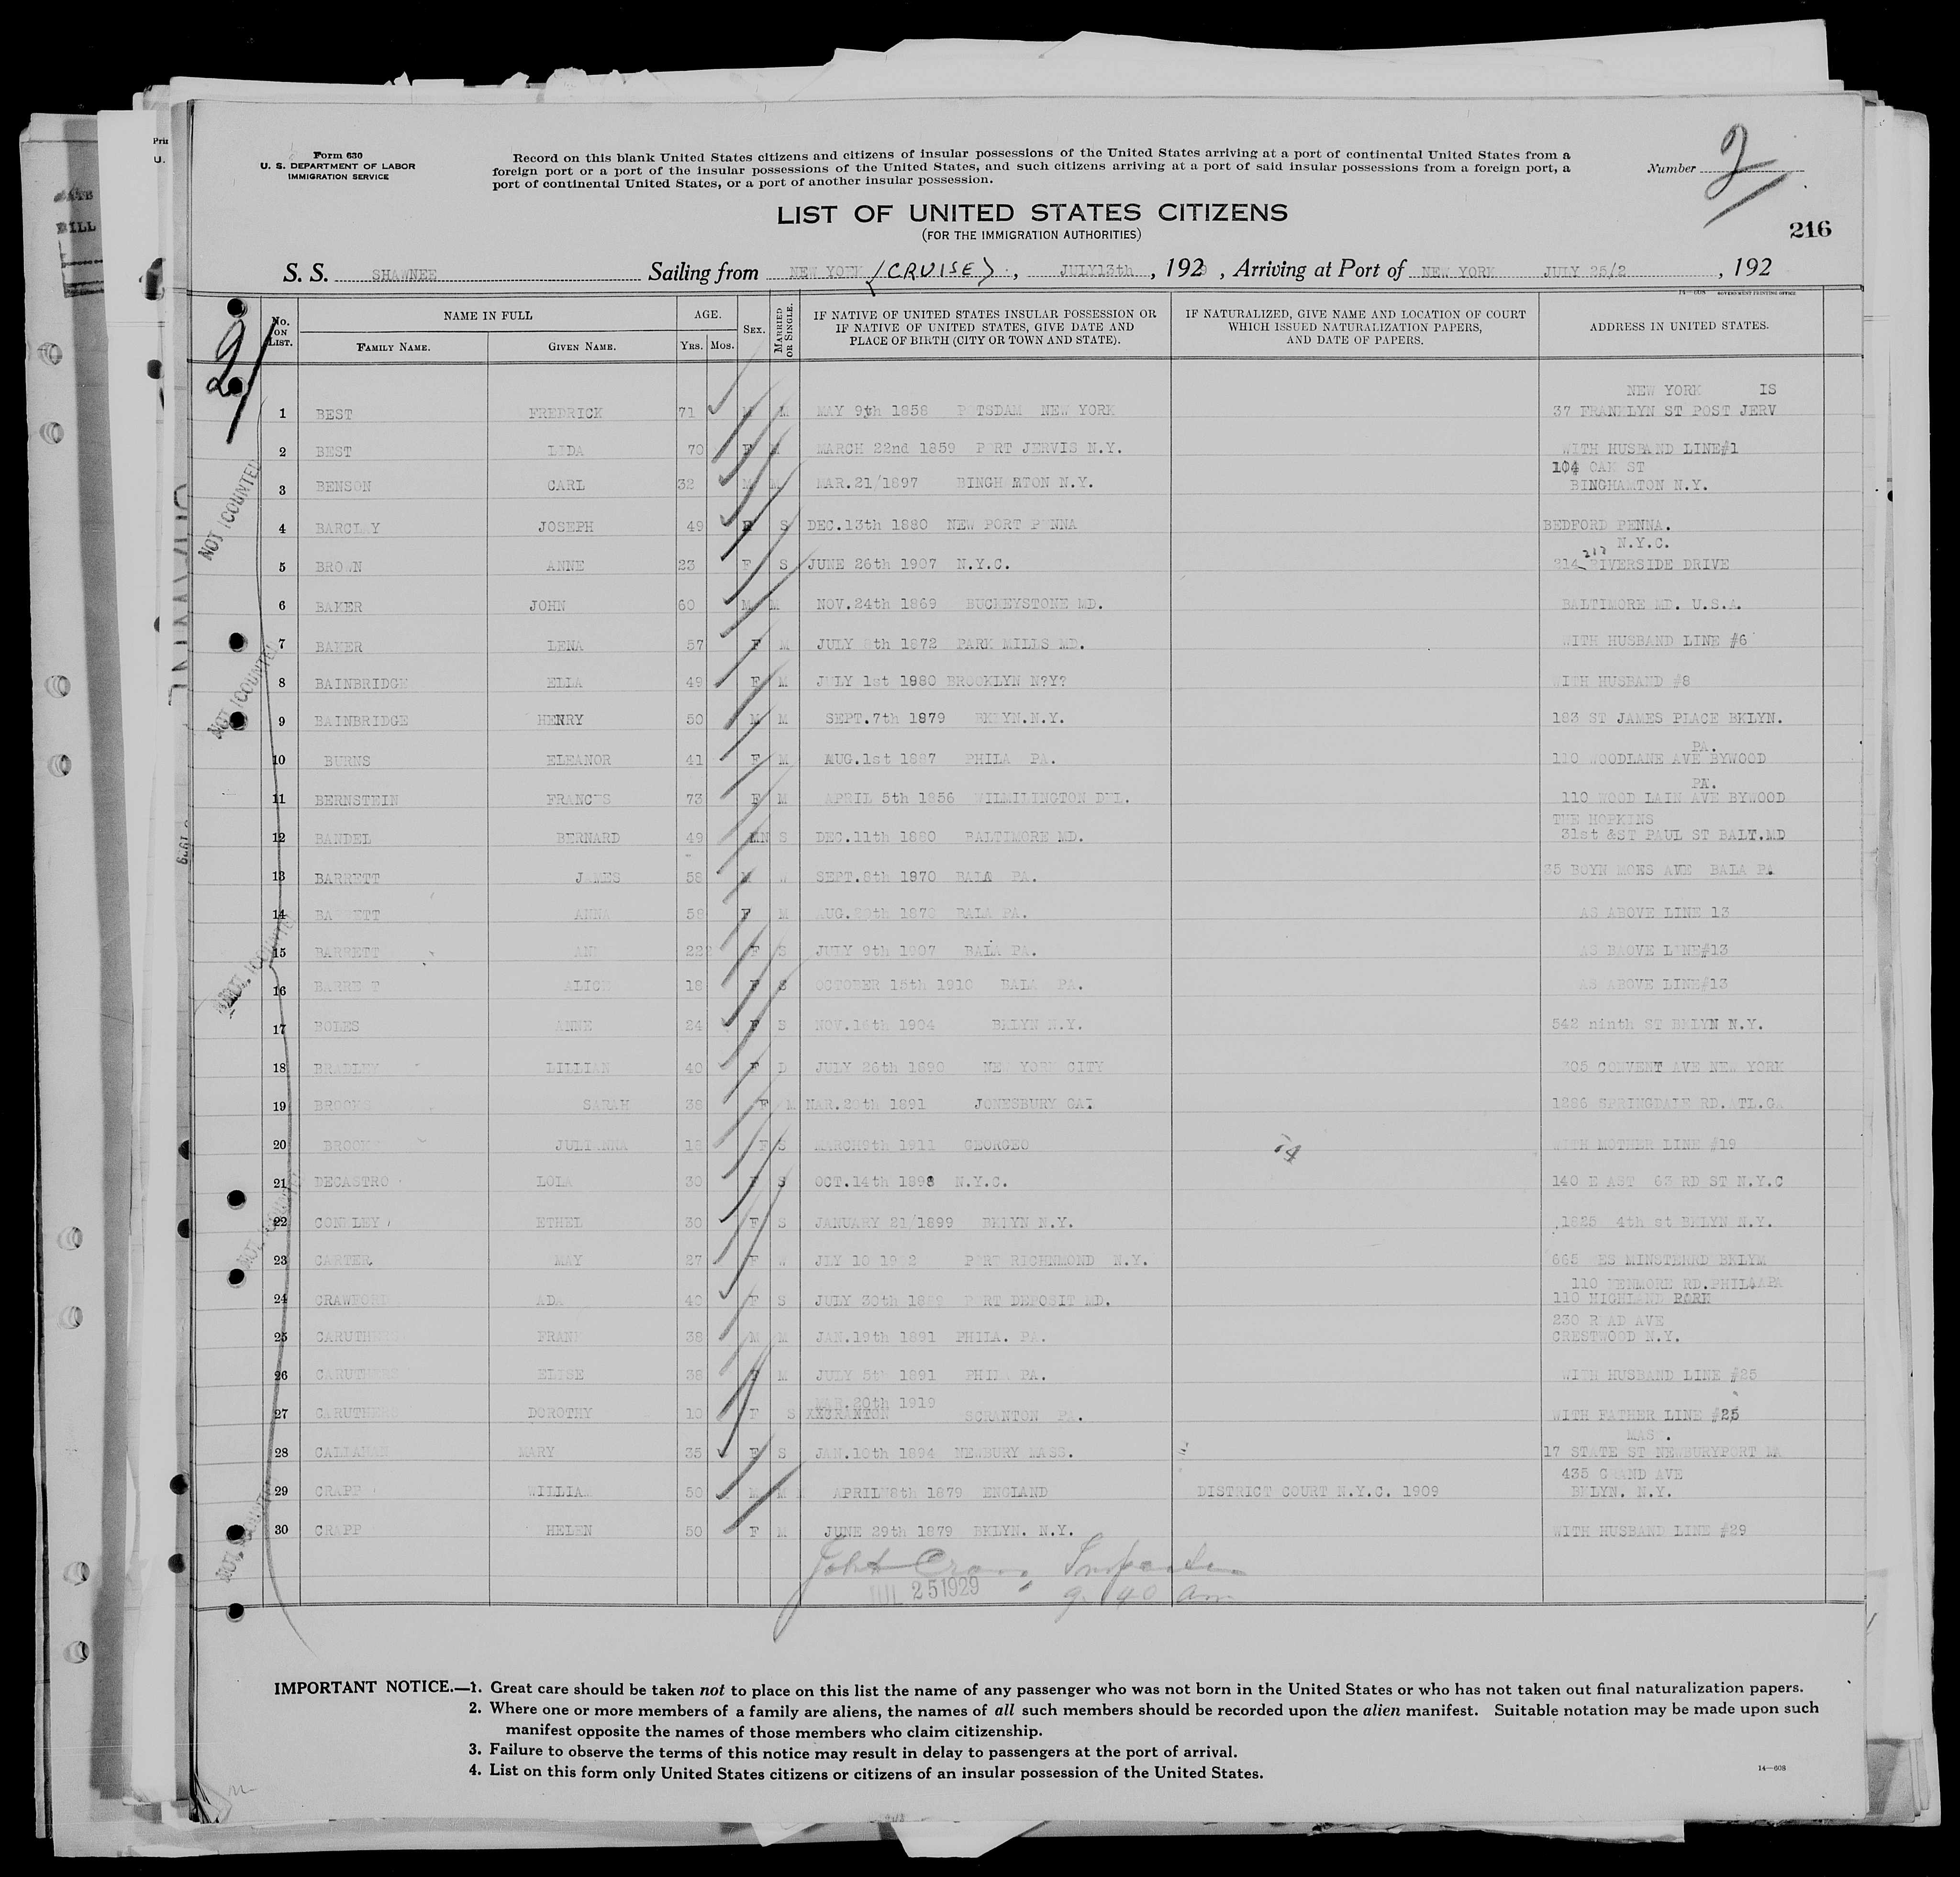 Form 630
U. S. DEPARTMENT OF LABOR
IMMIGRATION SERVICE
Record on this blank United States citizens and citizens of insular possessions of the United States arriving at a port of continental United States from a
foreign port or a port of the insular possessions of the United States, and such citizens arriving at a port of said insular possessions from a foreign port, a
port of continental United States, or a port of another insular possession.
Number 2
LIST OF UNITED STATES CITIZENS
(FOR THE IMMIGRATION AUTHORITIES)
216
S. S. SHAWNEE Sailing from NEW YORK (CRUISE), JULY13th, 1929, Arriving at Port of NEW YORK JULY 25/2, 192
14—608 GOVERNMENT PRINTING OFFICE
2
No. ON LIST. NAME IN FULL FAMILY NAME. GIVEN NAME. AGE. YRS. MOS. SEX. MARRIED OR SINGLE. IF NATIVE OF UNITED STATES INSULAR POSSESSION OR IF NATIVE OF UNITED STATES, GIVE DATE AND PLACE OF BIRTH (CITY OR TOWN AND STATE). IF NATURALIZED, GIVE NAME AND LOCATION OF COURT WHICH ISSUED NATURALIZATION PAPERS, AND DATE OF PAPERS. ADDRESS IN UNITED STATES.
NEW YORK IS
1 BEST FREDRICK 71 M M MAY 9th 1858 POTSDAM NEW YORK 37 FRANKLYN ST POST JERV
2 BEST LIDA 70 F M MARCH 22nd 1859 PORT JERVIS N.Y. WITH HUSBAND LINE#1
104 OAK ST
3 BENSON CARL 32 M M MAR.21/1897 BINGHAMTON N.Y. BINGHAMTON N.Y.
4 BARCLAY JOSEPH 49 S DEC.13th 1880 NEW PORT PENNA BEDFORD PENNA.
N.Y.C.
5 BROWN ANNE 23 F S JUNE 26th 1907 N.Y.C. 214 RIVERSIDE DRIVE
6 BAKER JOHN 60 M M NOV.24th 1869 BUCKEYSTONE MD. BALTIMORE MD. U.S.A.
7 BAKER LENA 57 F M JULY 8th 1872 PARK MILLS MD. WITH HUSBAND LINE #6
8 BAINBRIDGE ELLA 49 F M JULY 1st 1880 BROOKLYN N?Y? WITH HUSBAND #8
9 BAINBRIDGE HENRY 50 M M SEPT.7th 1879 BKLYN.N.Y. 183 ST JAMES PLACE BKLYN.
PA.
10 BURNS ELEANOR 41 F M AUG.1st 1887 PHILA PA. 110 WOODLANE AVE BYWOOD
PA.
11 BERNSTEIN FRANCES 73 F M APRIL 5th 1856 WILMILINGTON DEL. 110 WOOD LAIN AVE BYWOOD
THE HOPKINS
12 BANDEL BERNARD 49 S DEC.11th 1880 BALTIMORE MD. 31st &ST PAUL ST BALT.MD
13 BARRETT JAMES 58 M W SEPT.8th 1870 BALA PA. 35 BOYN MONS AVE BALA PA
14 BARRETT ANNA 58 F M AUG.29th 1870 BALA PA. AS ABOVE LINE 13
15 BARRETT ANN 22 F S JULY 9th 1907 BALA PA. AS BAOVE LINE#13
16 BARRETT ALICE 18 F S OCTOBER 15th 1910 BALA PA. AS ABOVE LINE#13
17 BOLES ANNE 24 F S NOV.16th 1904 BKLYN N.Y. 542 ninth ST BKLYN N.Y.
18 BRADLEY LILLIAN 40 F D JULY 26th 1890 NEW YORK CITY 305 CONVENT AVE NEW YORK
19 BROOKS SARAH 38 F M MAR.20th 1891 JONESBURY GA. 1286 SPRINGDALE RD.ATL.GA
20 BROOKS JULIANNA 18 F S MARCH9th 1911 GEORGEO WITH MOTHER LINE #19
21 DECASTRO LOLA 30 F S OCT.14th 1898 N.Y.C. 140 EAST 63 RD ST N.Y.C
22 CONKLEY ETHEL 30 F S JANUARY 21/1899 BKLYN N.Y. 1825 4th st BKLYN N.Y.
23 CARTER MAY 27 F W JLY 10 1902 PORT RICHNMOND N.Y. 665 WES MINSTERRD BKLYM
110 VENMORE RD.PHILAAPA
24 CRAWFORD ADA 40 F S JULY 30th 1889 PORT DEPOSIT MD. 110 HIGHLAND PARK
230 READ AVE
25 CARUTHERS FRANK 38 M M JAN.19th 1891 PHILA. PA. CRESTWOOD N.Y.
26 CARUTHERS ELISE 38 F M JULY 5th 1891 PHILA PA. WITH HUSBAND LINE #25
MAR.20th 1919
27 CARUTHERS DOROTHY 10 F S SCRANTON PA. WITH FATHER LINE #25
MASS.
28 CALLAHAN MARY 35 F S JAN.10th 1894 NEWBURY MASS. 17 STATE ST NEWBURYPORT MA
435 GRAND AVE
29 CRAPP WILLIAM 50 M M APRIL 8th 1879 ENGLAND DISTRICT COURT N.Y.C. 1909 BKLYN. N.Y.
30 CRAPP HELEN 50 F M JUNE 29th 1879 BKLYN. N.Y. WITH HUSBAND LINE #29
NOT COUNTED
NOT COUNTED
JUL 25 1929
9 40 am
IMPORTANT NOTICE.—1. Great care should be taken not to place on this list the name of any passenger who was not born in the United States or who has not taken out final naturalization papers.
2. Where one or more members of a family are aliens, the names of all such members should be recorded upon the alien manifest. Suitable notation may be made upon such
manifest opposite the names of those members who claim citizenship.
3. Failure to observe the terms of this notice may result in delay to passengers at the port of arrival.
4. List on this form only United States citizens or citizens of an insular possession of the United States.
14—608